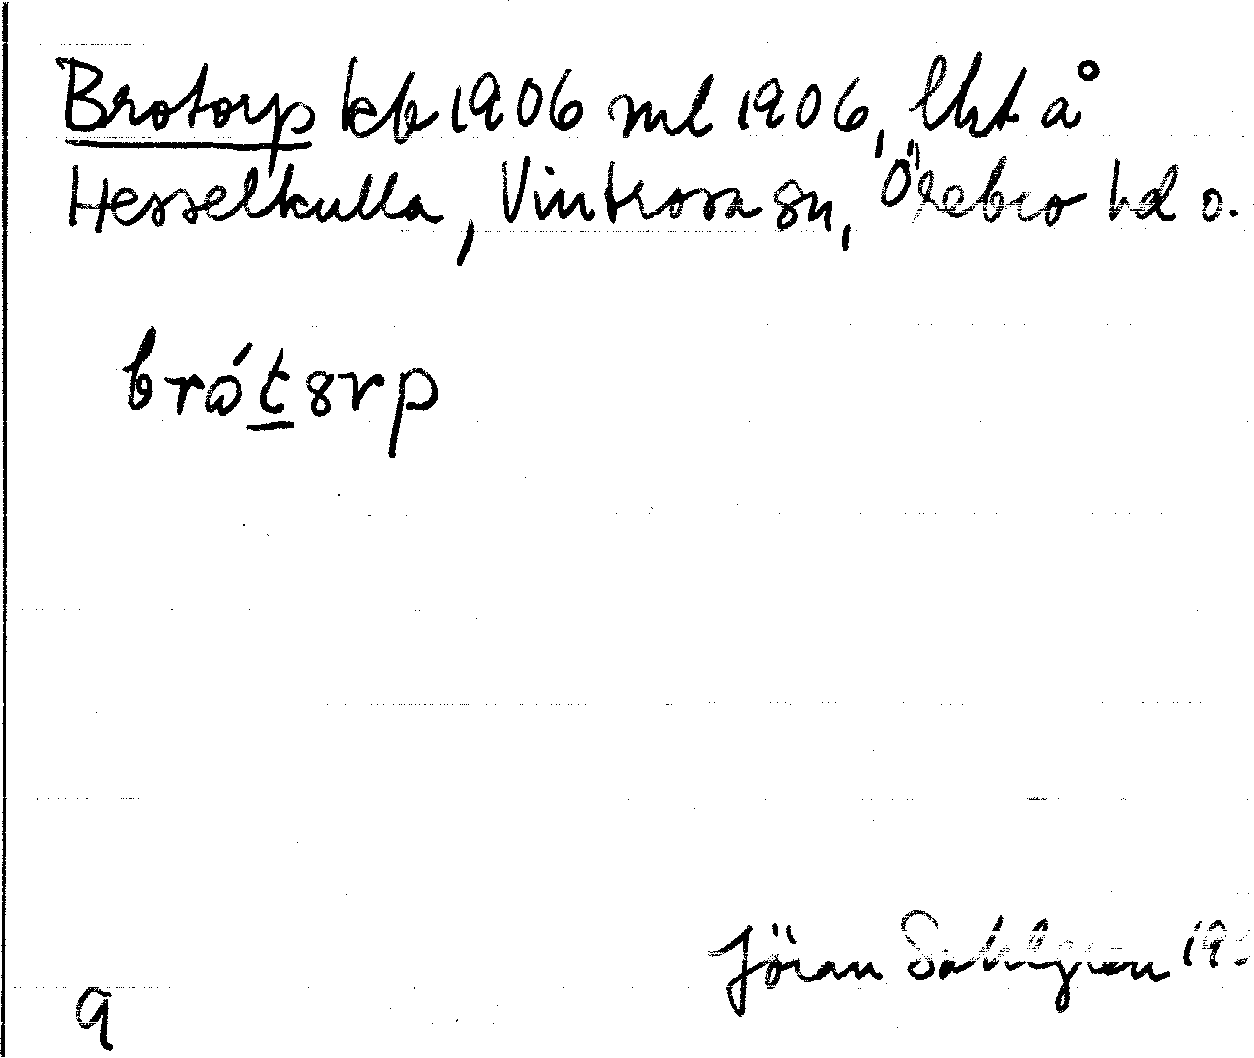 Brotorp kb 1906 ml 1906, lht å
Hesselkulla, Vintrosa sn, Örebro hd o.
brótsrp
Jöran Sahlgren 19
9